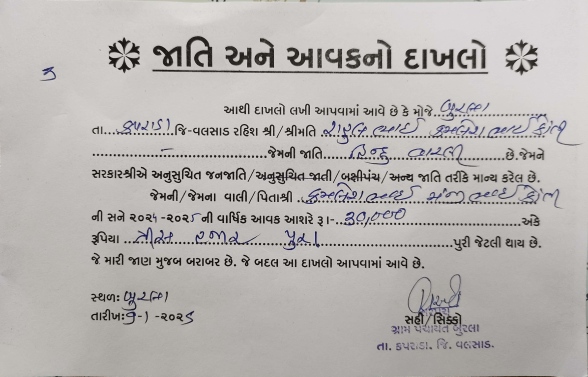 જાતિ અને આવકનો દાખલો
આથી દાખલો લખી આપવામાં આવે છે કે મોજે બુરલા
તા. કપરાડા જિ-વલસાડ રહિશ શ્રી/શ્રીમતિ રાહુલભાઈ કમલેશભાઈ
જેમની જાતિ હિન્દુ વારલી છે.જેમને
સરકારશ્રીએ અનુસુચિત જનજાતિ/અનુસુચિત જાતી/બક્ષીપંચ/અન્ય જાતિ તરીકે માન્ય કરેલ છે.
જેમની/જેમના વાલી/પિતાશ્રી કમલેશભાઈ
ની સને ૨૦૨૫-૨૦૨૬ની વાર્ષિક આવક આશરે રૂા.- ૩૦,૦૦૦ અંકે
રૂપિયા ત્રીસ હજાર પુરા પુરી જેટલી થાય છે.
જે મારી જાણ મુજબ બરાબર છે. જે બદલ આ દાખલો આપવામાં આવે છે.
સ્થળઃ બુરલા
તારીખઃ ૧-૧-૨૦૨૬
સહી/સિક્કો
ગ્રામ પંચાયત બુરલા
તા. કપરાડા. જિ. વલસાડ.